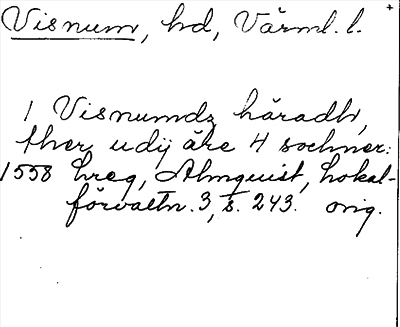 Visnum, hd, Värml. l.
1 Visnumdz häradh,
ther udij äre 4 sochner:
1558 hreg, Almquist, Lokal-
förvaltn. 3, s. 243. orig.